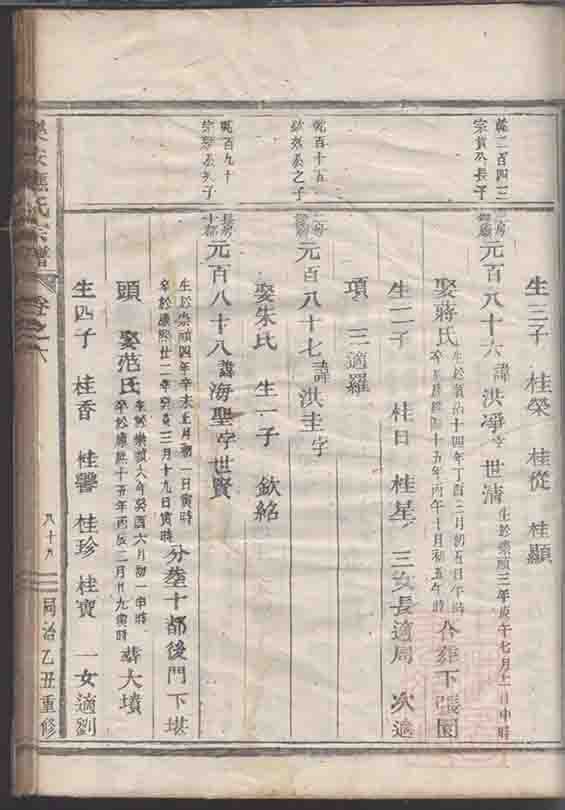 生三子 桂榮 桂從 桂顯
乾二百四三
宗貴公長子
元百八十六諱洪凈字世清生於崇禎三年庚午七月十一日申時
娶蔣氏生於 十四年丁酉三月初五日午時
十五年丙午十月初五午時
合葬下張園
生二子 桂日 桂星 三女長適周 次適
項 三適羅
乾百十五
之子
元百八十七諱洪圭字
娶朱氏 生一子 欽紹
乾百九十
長房
十都
元百八十八諱海聖字世賢
生於崇禎四年辛未正月初一日寅時
卒於康熙廿二年癸亥三月十九日寅時
分塟十都後門下堪
頭 娶范氏
生於崇禎六年癸酉六月初一申時
卒於康熙十五年丙辰二月廿九寅時
葬大墳
生四子 桂香 桂馨 桂珍 桂寶 一女適劉
氏宗譜 卷之六 八十九 同治乙丑重修